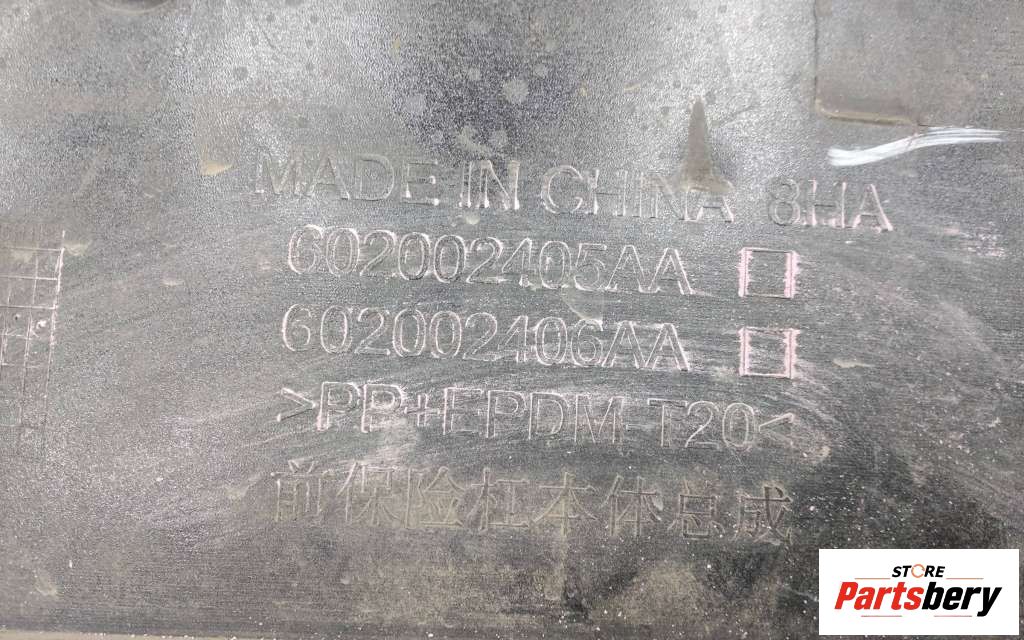 MADE IN CHINA 8HA
602002405AA
602002406AA
>PP+EPDM-T20<
前保险杠本体总成
STORE
Partsbery